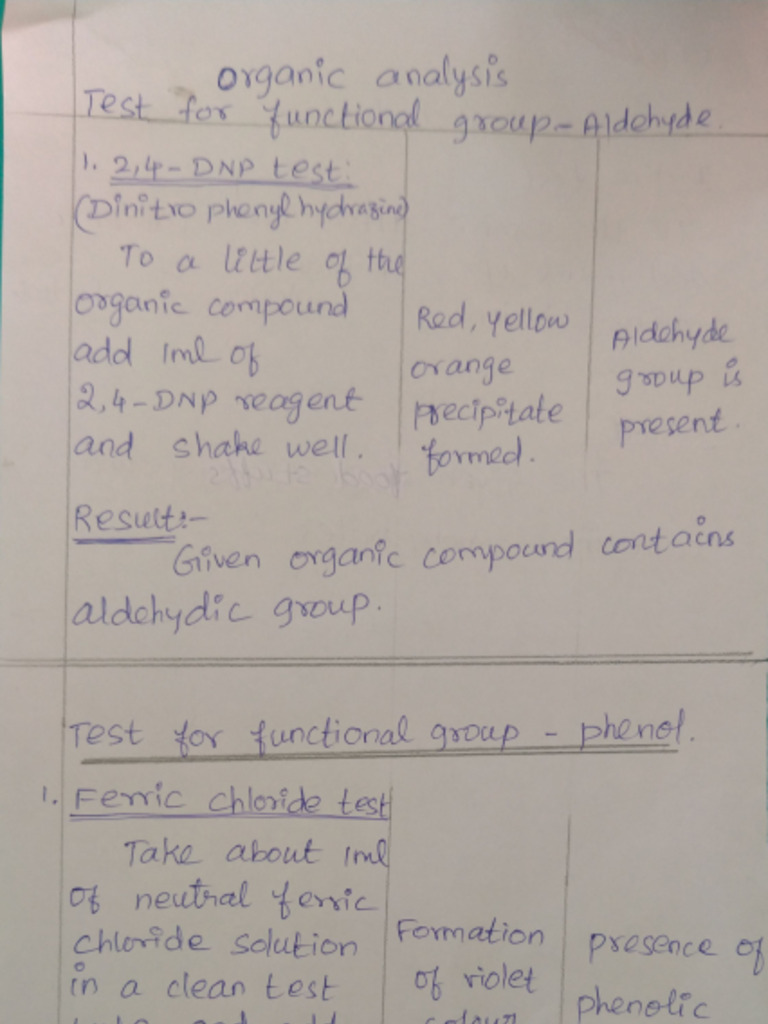 Organic analysis
Test for functional group - Aldehyde.
1. 2,4-DNP test:
(Dinitro phenyl hydrazine)
To a little of the
organic compound
add 1ml of
2,4-DNP reagent
and shake well.
Red, yellow
orange
precipitate
formed.
Aldehyde
group is
present.
Result:-
Given organic compound contains
aldehydic group.
Test for functional group - phenol.
1. Ferric chloride test
Take about 1ml
of neutral ferric
chloride solution
in a clean test
Formation
of violet
colour
presence of
phenolic